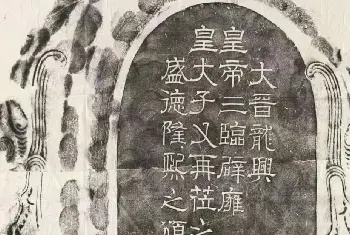 大晉龍興
皇帝三臨辟雍
皇太子又再莅之
盛德隆熙之頌